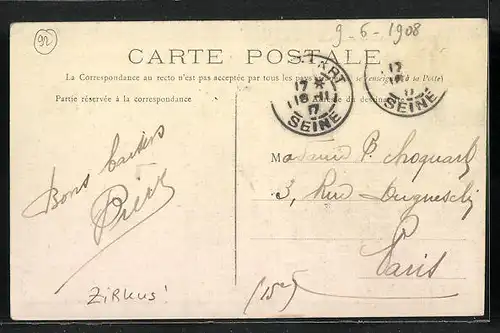 92
9-6-1908
CARTE POSTALE
La Correspondance au recto n'est pas acceptée par tous les pays
(Se renseigner à la Poste)
Partie réservée à la correspondance
17
SEINE
17
SEINE
Bons baisers
Madame P. Choquart
3, Rue Duguesclin
Paris
(15e)
Zirkus!